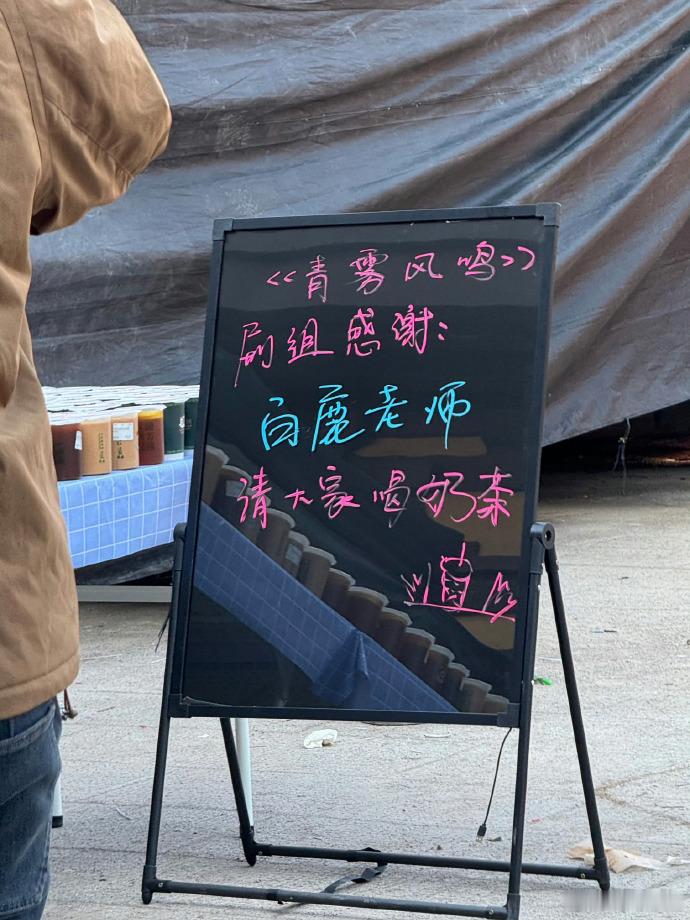 <<青雾风鸣>>
剧组感谢:
白鹿老师
请大家喝奶茶